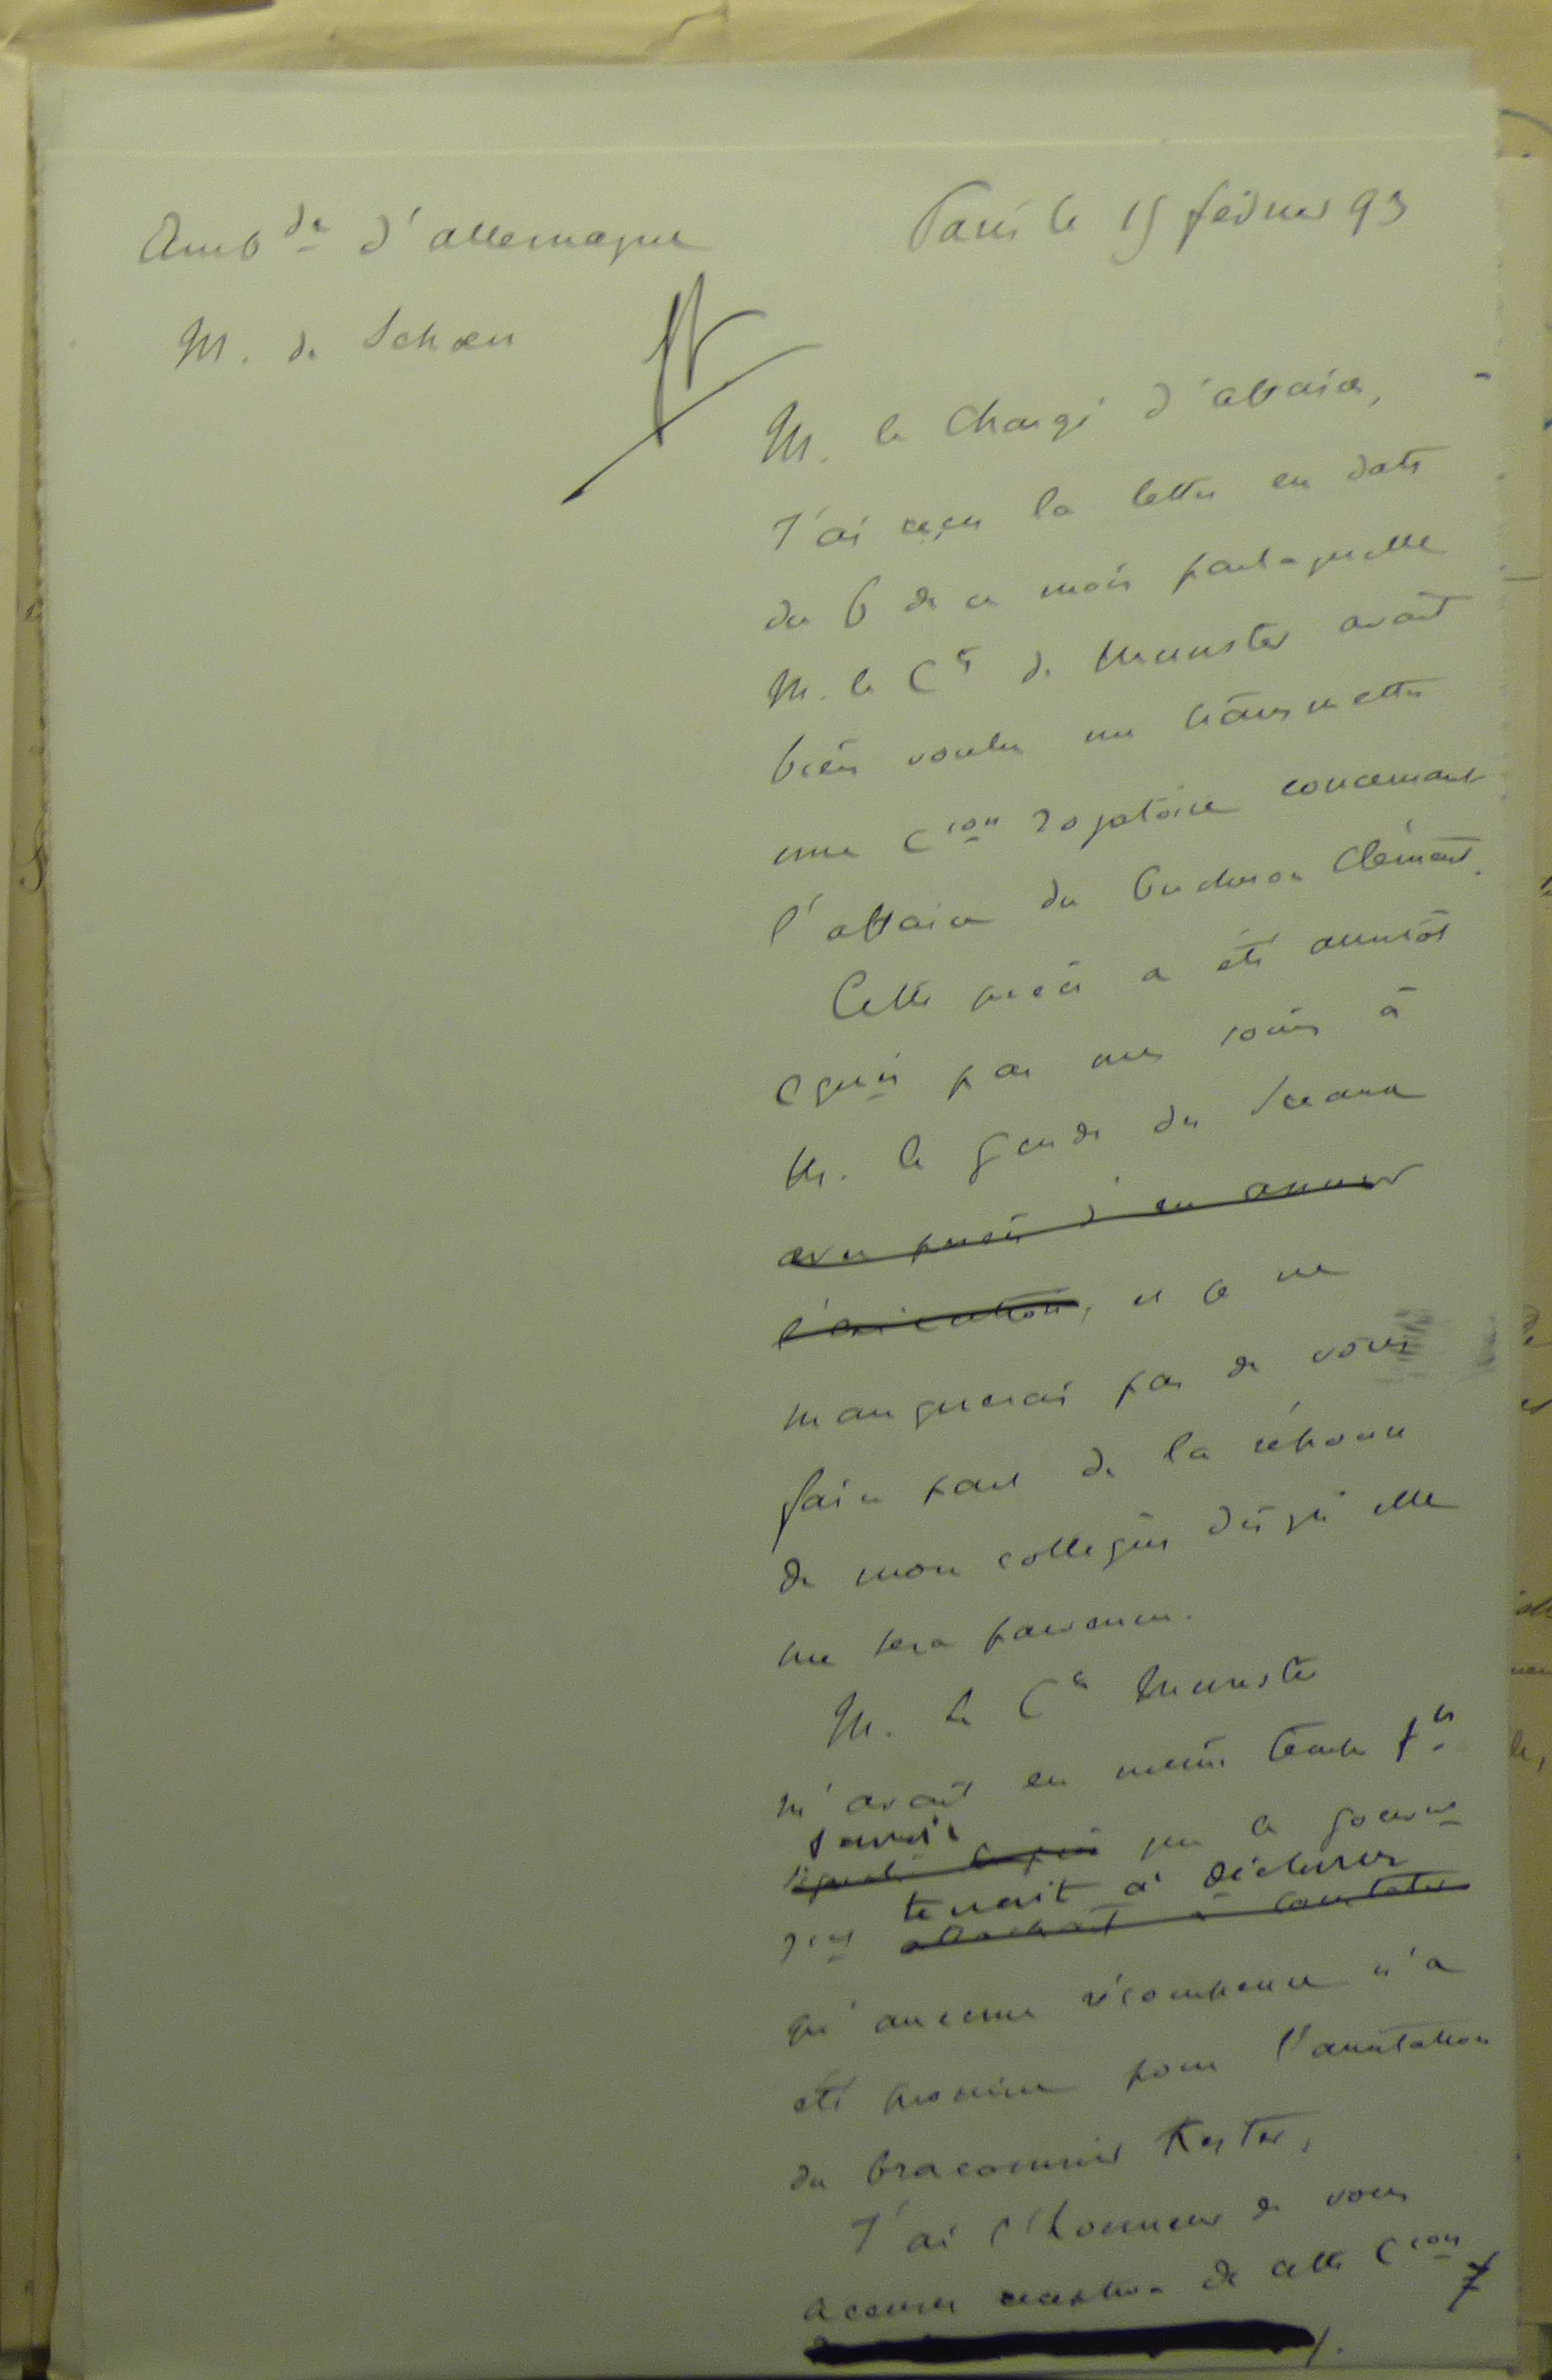 Amb de d'Allemagne
Paris le 15 février 93
M. de Schoen
M. le Chargé d'affaires,
J'ai reçu la lettre en date
du 6 de ce mois par laquelle
M. le Cte de Munster avait
bien voulu me transmettre
une Cion rogatoire concernant
l'affaire du bucheron Clément.
Cette pièce a été aussitôt
par mes soins à
M. le Garde des Sceaux
avec prière d'en assurer
l'exécution, et je ne
manquerai pas de vous
faire part de la réponse
de mon collègue dès qu'elle
me sera parvenue.
M. le Cte Munster
m'avait en même temps
savoir
que le gouver
tenait à déclarer
attachait à constater
qu'aucune récompense n'a
été promise pour l'arrestation
du braconnier Kester.
J'ai l'honneur de vous
accuser réception de cette Cion